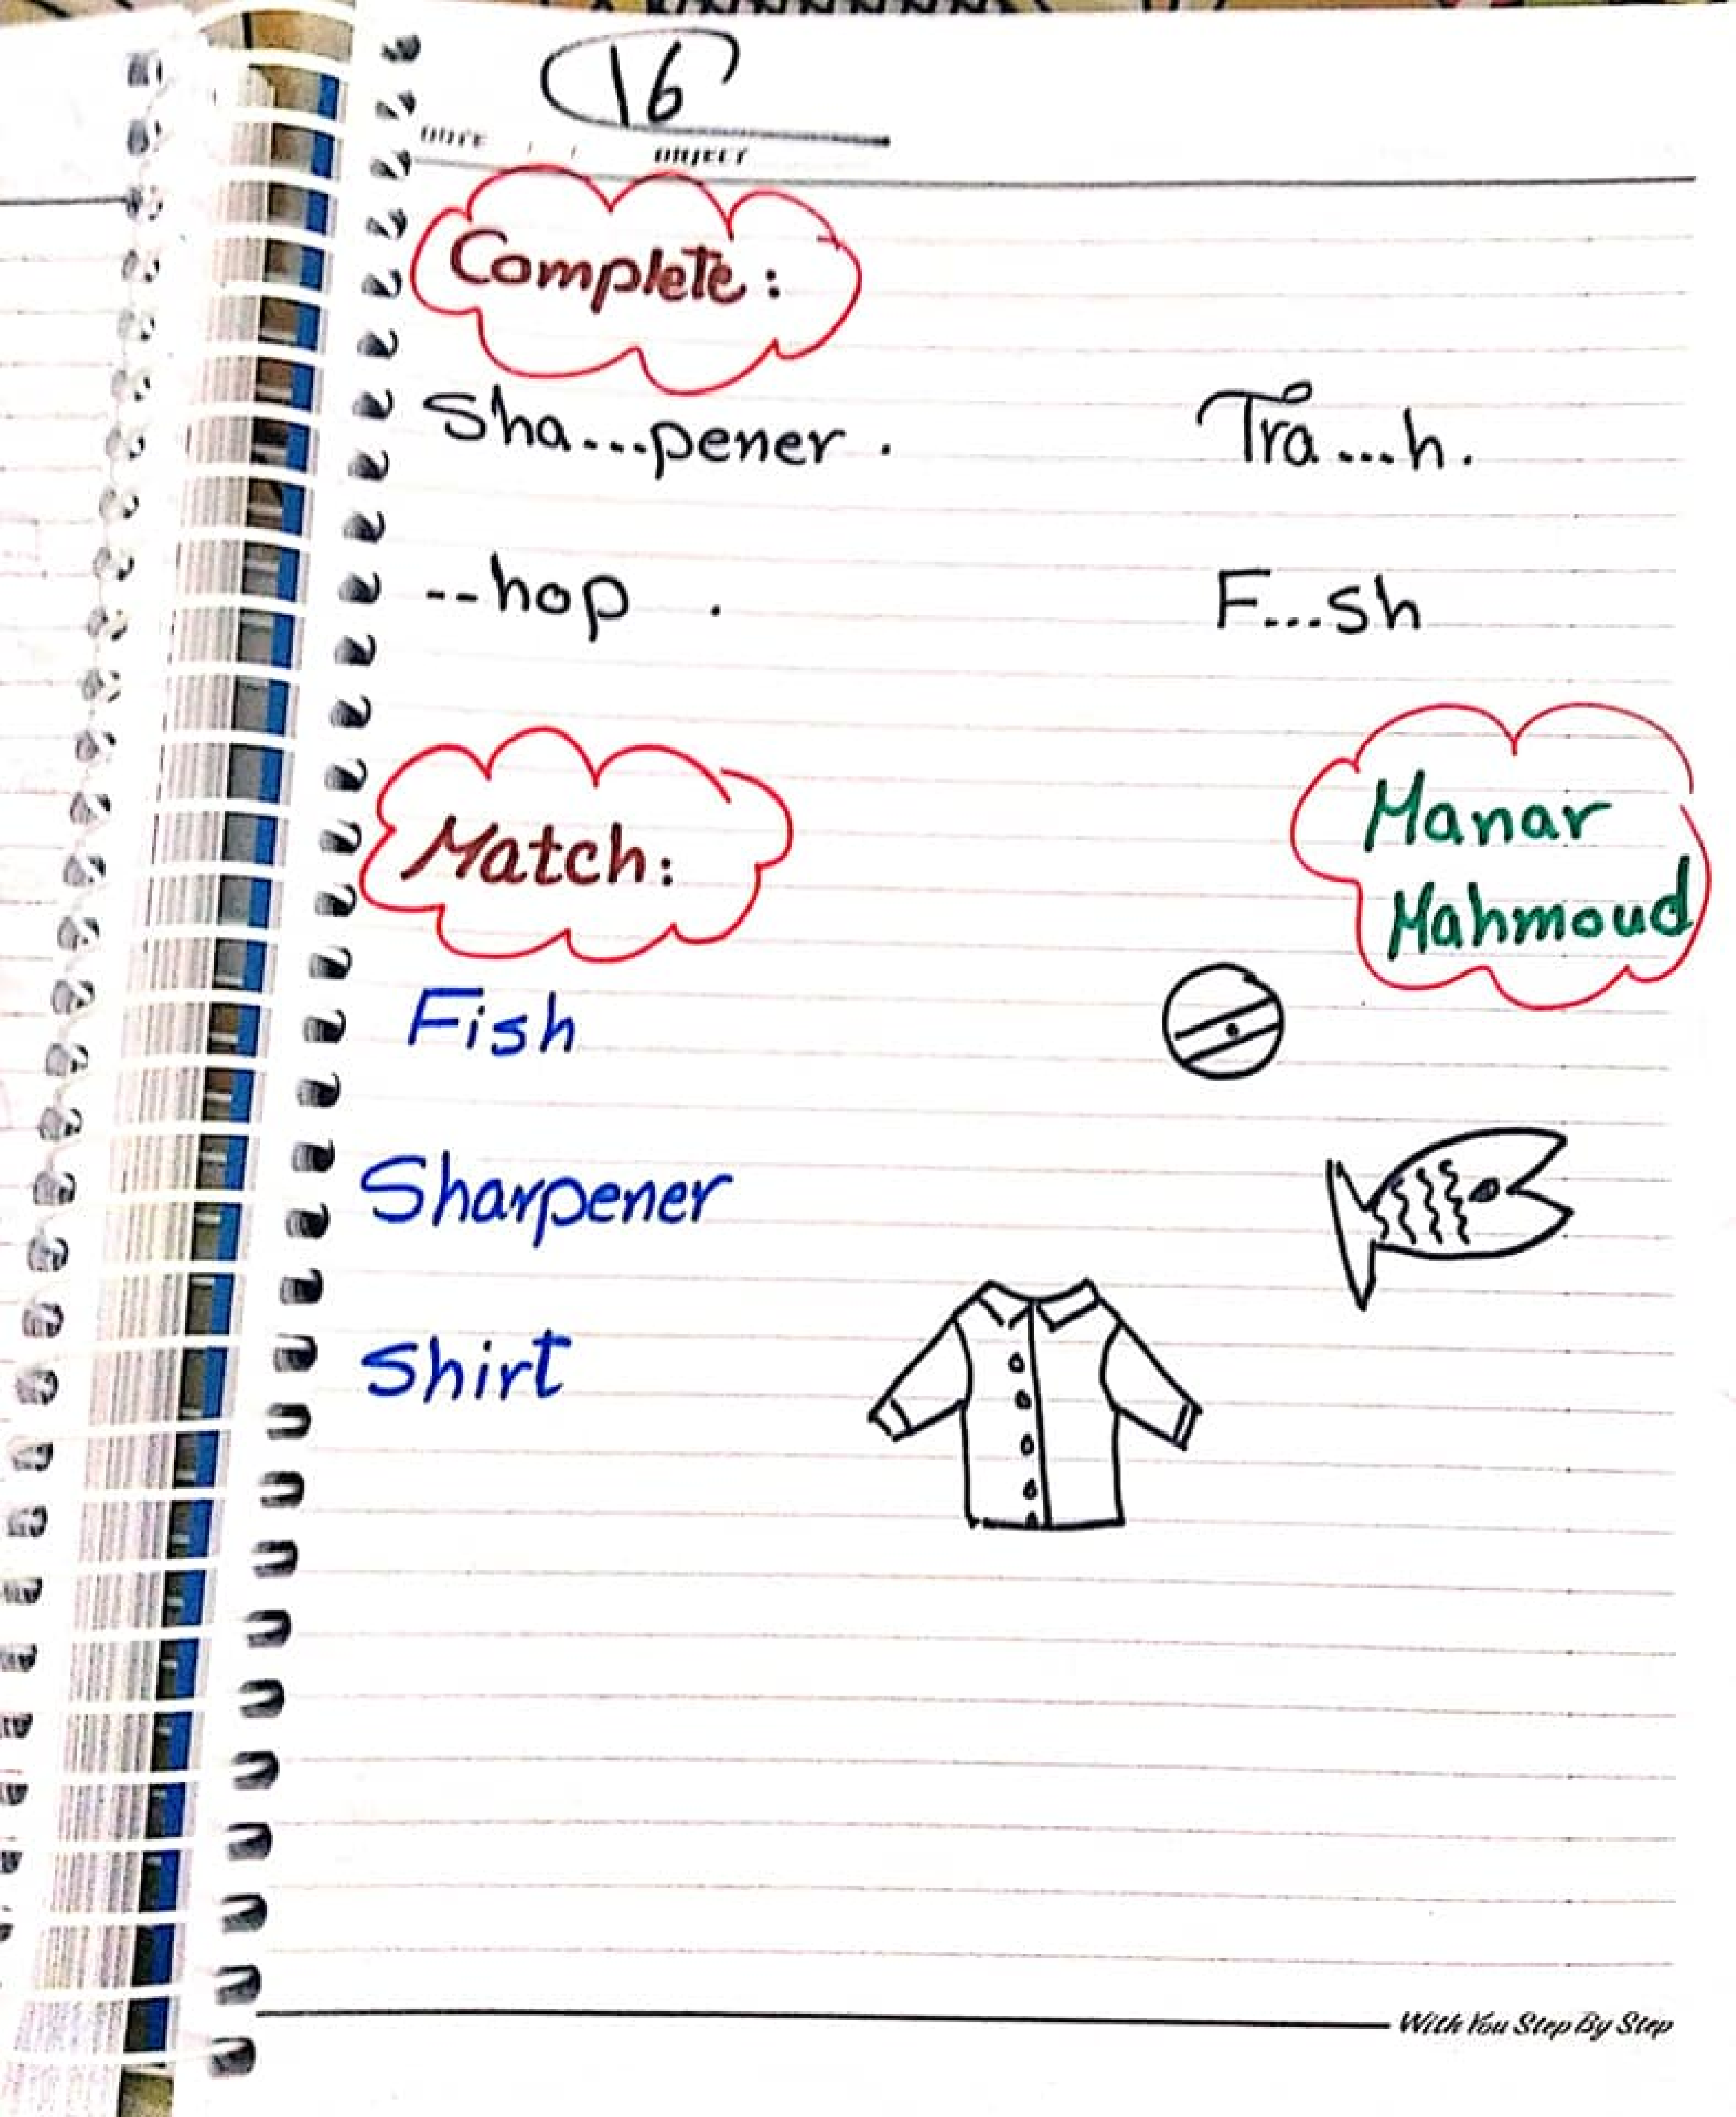 16
DATE / / OBJECT
Complete:
Sha...pener. Tra...h.
--hop . F...sh
Match:
Manar
Mahmoud
Fish
Sharpener
Shirt
With You Step By Step